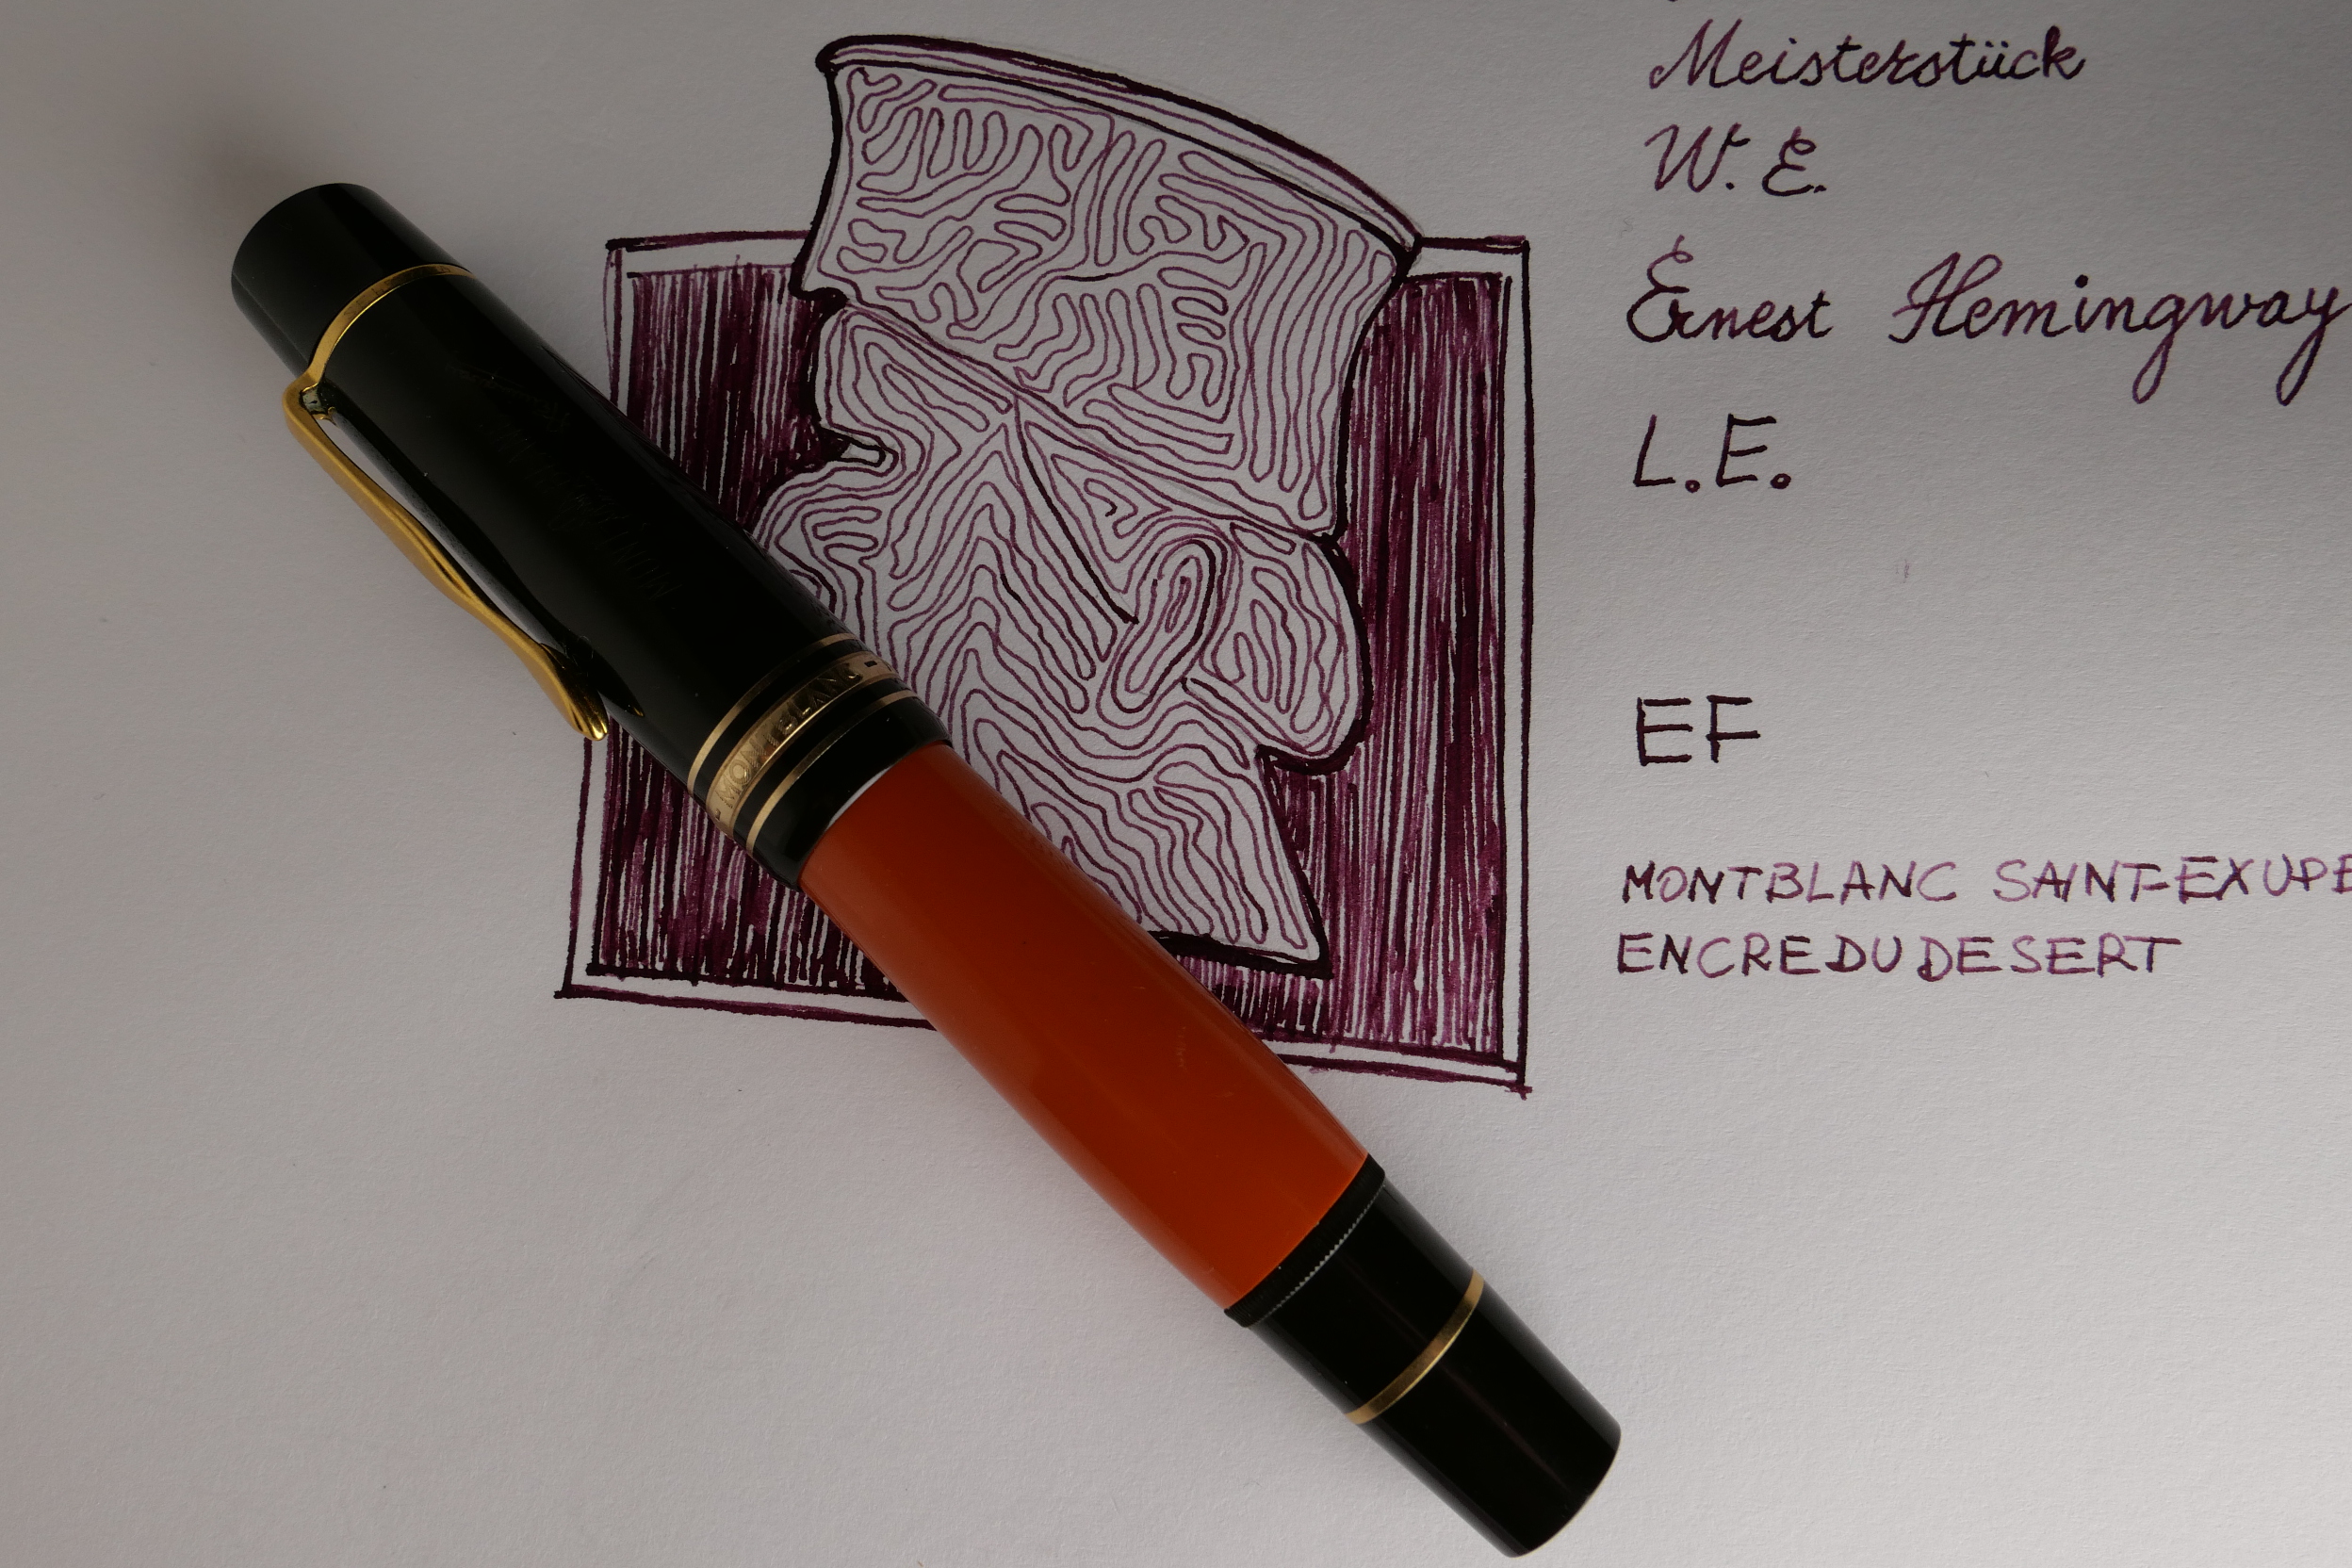 Meisterstück
W. E.
Ernest Hemingway
L.E.
EF
MONTBLANC SAINT-EXUPE
ENCRE DU DESERT
- MONTBLANC -